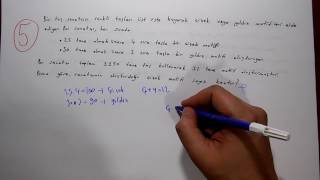 5
Bir taş sanatçısı renkli taşları üst üste koyarak çiçek veya yıldız motifleri elde
ediyor. Bu sanatçı, her sırada
• 25 tane olmak üzere 4 sıra taşla bir çiçek motifi
• 30 tane olmak üzere 3 sıra taşla bir yıldız motifi oluşturuyor.
Bu sanatçı toplam 1150 tane taş kullanarak 12 tane motif oluşturmuştur.
Buna göre, sanatçının oluşturduğu çiçek motifi sayısı kaçtır?
25.4=100 → çiçek Ç+Y=12
30.3=90 → yıldız